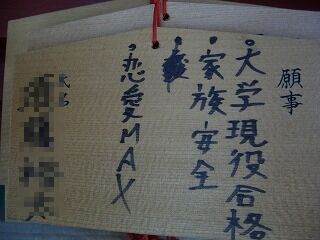 願事
・大学現役合格
・家族安全
・
・恋愛MAX
氏名